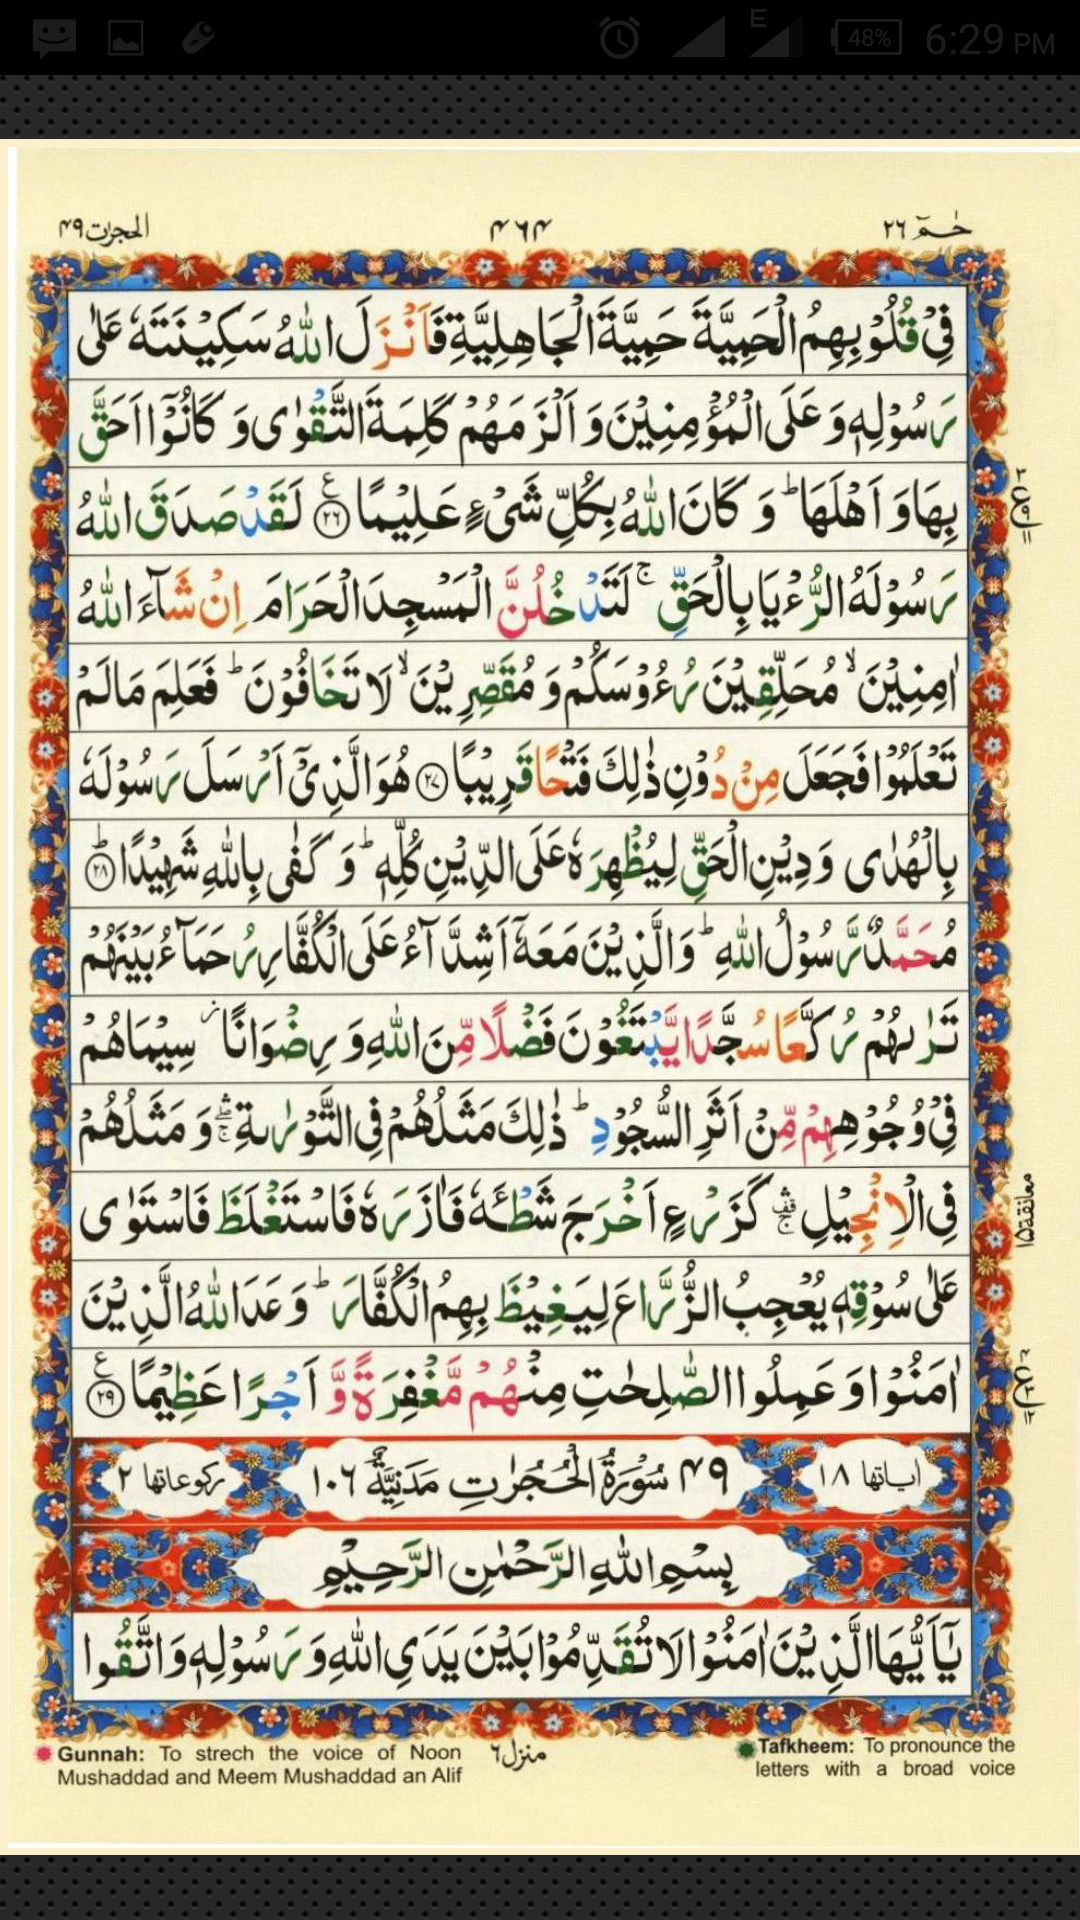 48%
E
6:29 PM
حٰـمٓ ٢٦
٤٦٤
الحجرٰت ٤٩
فِیْ قُلُوْبِهِمُ الْحَمِیَّةَ حَمِیَّةَ الْجَاهِلِیَّةِ فَاَنْزَلَ اللّٰهُ سَكِیْنَتَهٗ عَلٰی
رَسُوْلِهٖ وَ عَلَی الْمُؤْمِنِیْنَ وَ اَلْزَمَهُمْ كَلِمَةَ التَّقْوٰی وَ كَانُوْۤا اَحَقَّ
بِهَا وَ اَهْلَهَا ؕ وَ كَانَ اللّٰهُ بِكُلِّ شَیْءٍ عَلِیْمًا ﴿٢٦﴾ ع لَقَدْ صَدَقَ اللّٰهُ
رَسُوْلَهُ الرُّءْیَا بِالْحَقِّ ۚ لَتَدْخُلُنَّ الْمَسْجِدَ الْحَرَامَ اِنْ شَآءَ اللّٰهُ
اٰمِنِیْنَ ۙ مُحَلِّقِیْنَ رُءُوْسَكُمْ وَ مُقَصِّرِیْنَ ۙ لَا تَخَافُوْنَ ؕ فَعَلِمَ مَا لَمْ
تَعْلَمُوْا فَجَعَلَ مِنْ دُوْنِ ذٰلِكَ فَتْحًا قَرِیْبًا ﴿٢٧﴾ هُوَ الَّذِیْۤ اَرْسَلَ رَسُوْلَهٗ
بِالْهُدٰی وَ دِیْنِ الْحَقِّ لِیُظْهِرَهٗ عَلَی الدِّیْنِ كُلِّهٖ ؕ وَ كَفٰی بِاللّٰهِ شَهِیْدًا ؕ﴿٢٨﴾
مُحَمَّدٌ رَّسُوْلُ اللّٰهِ ؕ وَ الَّذِیْنَ مَعَهٗۤ اَشِدَّآءُ عَلَی الْكُفَّارِ رُحَمَآءُ بَیْنَهُمْ
تَرٰىهُمْ رُكَّعًا سُجَّدًا یَّبْتَغُوْنَ فَضْلًا مِّنَ اللّٰهِ وَ رِضْوَانًا ؗ سِیْمَاهُمْ
فِیْ وُجُوْهِهِمْ مِّنْ اَثَرِ السُّجُوْدِ ؕ ذٰلِكَ مَثَلُهُمْ فِی التَّوْرٰىةِ ۛۖۚ وَ مَثَلُهُمْ
فِی الْاِنْجِیْلِ ۛ۫ۚ كَزَرْعٍ اَخْرَجَ شَطْـَٔهٗ فَاٰزَرَهٗ فَاسْتَغْلَظَ فَاسْتَوٰی
عَلٰی سُوْقِهٖ یُعْجِبُ الزُّرَّاعَ لِیَغِیْظَ بِهِمُ الْكُفَّارَ ؕ وَعَدَ اللّٰهُ الَّذِیْنَ
اٰمَنُوْا وَ عَمِلُوا الصّٰلِحٰتِ مِنْهُمْ مَّغْفِرَةً وَّ اَجْرًا عَظِیْمًا ﴿٢٩﴾ ع
معانقة ١٥
اٰیاتها ١٨
٤٩ سُوْرَةُ الْحُجُرٰتِ مَدَنِیَّةٌ ١٠٦
ركوعاتها ٢
بِسْمِ اللّٰهِ الرَّحْمٰنِ الرَّحِیْمِ
یٰۤاَیُّهَا الَّذِیْنَ اٰمَنُوْا لَا تُقَدِّمُوْا بَیْنَ یَدَیِ اللّٰهِ وَ رَسُوْلِهٖ وَ اتَّقُوا
منزل ٦
Gunnah: To strech the voice of Noon
Mushaddad and Meem Mushaddad an Alif
Tafkheem: To pronounce the
letters with a broad voice